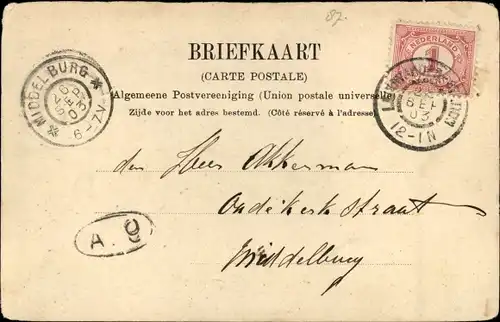 82.
BRIEFKAART
(CARTE POSTALE)
Algemeene Postvereeniging (Union postale universelle)
Zijde voor het adres bestemd. (Côté réservé à l'adresse)
NEDERLAND
1
SEP
03
12-1N
MIDDELBURG
SEP
03
6-7V
den Heer Akkerman
Oudekerkstraat
Middelburg
A. 9